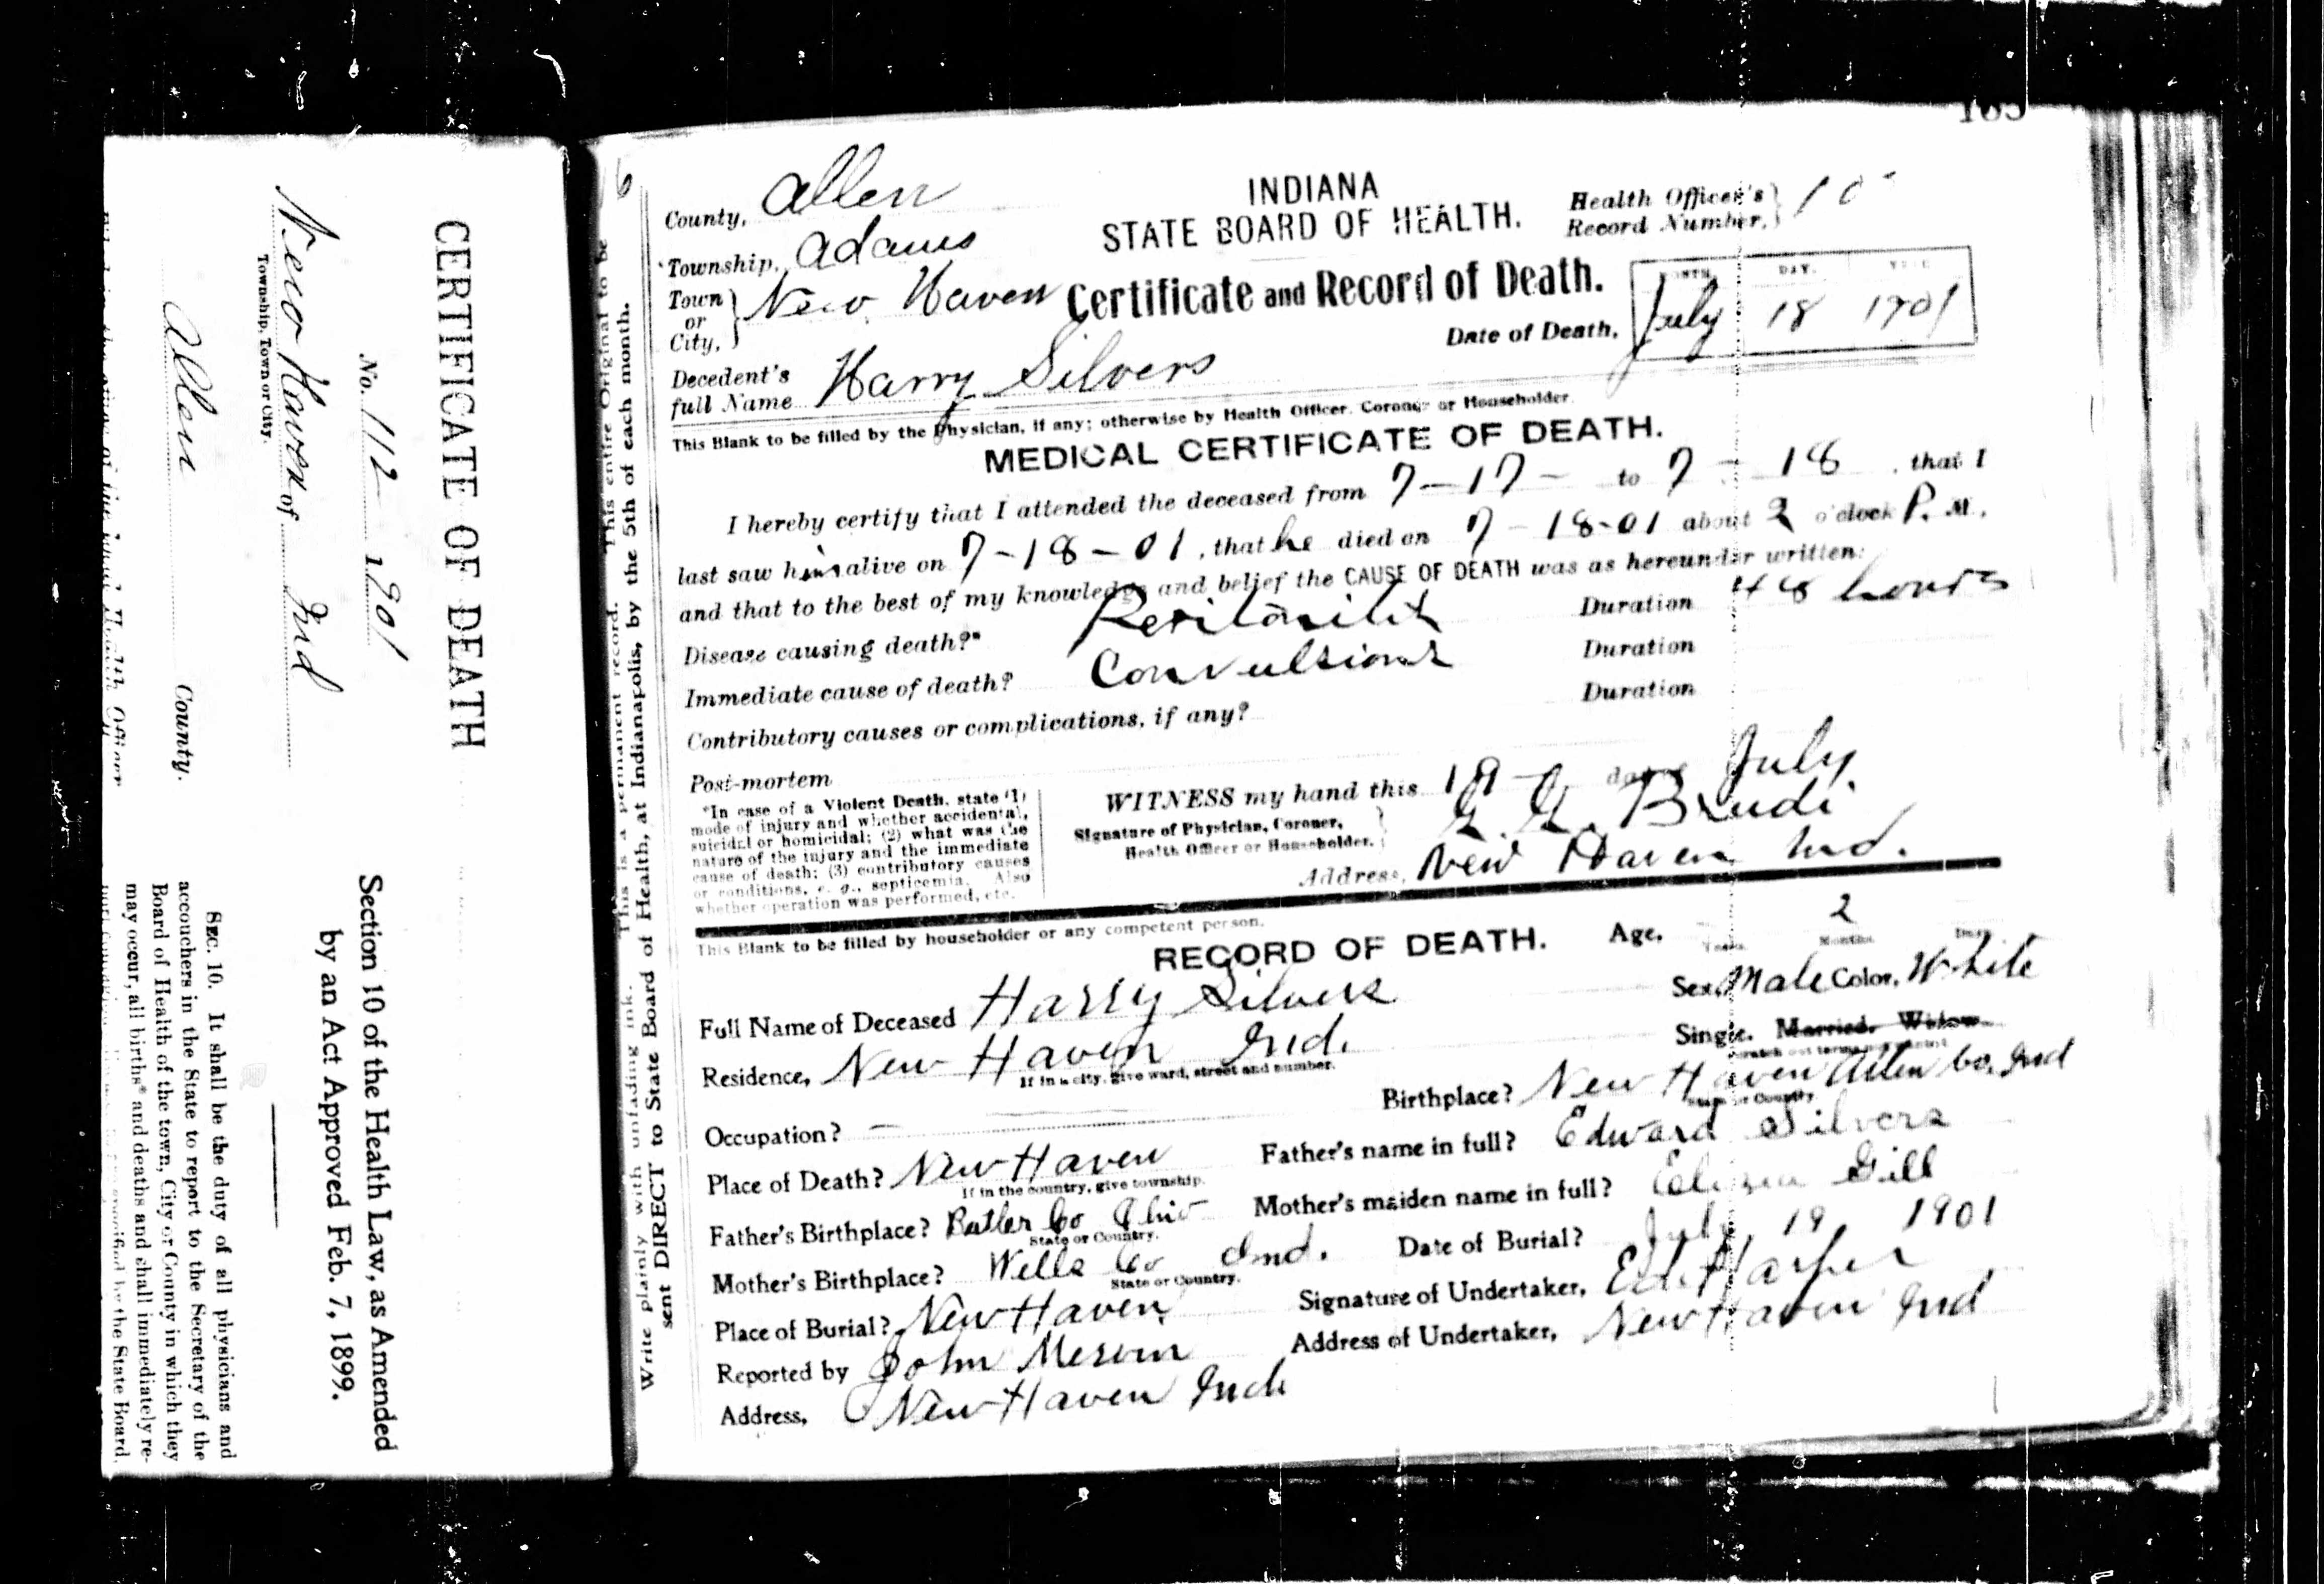 CERTIFICATE OF DEATH
No. 112 1901
New Haven of Ind
Township, Town or City.
Allen County.
Section 10 of the Health Law, as Amended
by an Act Approved Feb. 7, 1899.
SEC. 10. It shall be the duty of all physicians and
accouchers in the State to report to the Secretary of the
Board of Health of the town, City or County in which they
may occur, all births* and deaths and shall immediately re-
by the State Board.
This is a permanent record. This entire Original to be
Write plainly with unfading ink.
sent DIRECT to State Board of Health, at Indianapolis, by the 5th of each month.
6
County, Allen
INDIANA
STATE BOARD OF HEALTH.
Health Officer's
Record Number, 10
Township, Adams
Town or City, New Haven
Certificate and Record of Death.
MONTH DAY. YEAR
Date of Death, July 18 1901
Decedent's
full Name Harry Silvers
This Blank to be filled by the Physician, if any; otherwise by Health Officer, Coroner or Householder.
MEDICAL CERTIFICATE OF DEATH.
I hereby certify that I attended the deceased from 7-17- to 7-18, that I
last saw him alive on 7-18-01, that he died on 7-18-01 about 2 o'clock P. M.,
and that to the best of my knowledge and belief the CAUSE OF DEATH was as hereunder written:
Disease causing death?* Peritonitis Duration 48 hours
Immediate cause of death? Convulsions Duration
Contributory causes or complications, if any? Duration
Post-mortem
*In case of a Violent Death, state (1)
mode of injury and whether accidental,
suicidal or homicidal; (2) what was the
nature of the injury and the immediate
cause of death; (3) contributory causes
or conditions, e. g., septicemia. Also
whether operation was performed, etc.
WITNESS my hand this 19- day of July
Signature of Physician, Coroner,
Health Officer or Householder. Brudi
Address, New Haven Ind.
This Blank to be filled by householder or any competent person.
RECORD OF DEATH.
Age, Years 2 Months Days
Full Name of Deceased Harry Silvers
Sex, Male Color, White
Residence, New Haven Ind.
If in a city, give ward, street and number.
Single. Married. Widow.
Birthplace? New Haven Allen Co. Ind
State or Country
Occupation? —
Father's name in full? Edward Silvers
Place of Death? New Haven
If in the country, give township.
Mother's maiden name in full? Gill
Father's Birthplace? Butler Co Ohio
State or Country.
Date of Burial? July 19, 1901
Mother's Birthplace? Wells Co Ind.
State or Country.
Signature of Undertaker, Ed. Harper
Place of Burial? New Haven
Address of Undertaker, New Haven Ind
Reported by John
Address, New Haven Ind